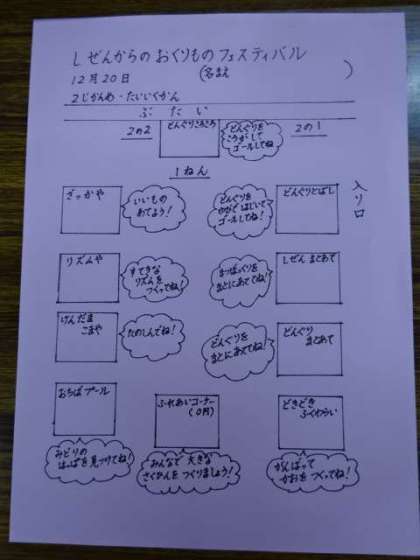 しぜんからの おくりもの フェスティバル
12月20日
(名まえ )
2じかんめ・たいいくかん
ぶたい
2の2
どんぐりころころ
どんぐりを
ころがして
ゴールしてね!
2の1
1ねん
入り口
ざっかや
いいもの
あてよう!
どんぐりを
ゆびではじいて
ゴールしてね!
どんぐりとばし
リズムや
すてきな
リズムを
つくってね!
まつぼっくりを
まとにあててね!
しぜん まとあて
けんだま
こまや
たのしんでね!
どんぐりを
まとにあててね!
どんぐり
まとあて
おちばプール
みどりの
はっぱを見つけてね!
ふれあいコーナー
(0円)
みんなで 大きな
さくひんを つくりましょう!
どきどき
ふくわらい
がんばって
かおをつくってね!